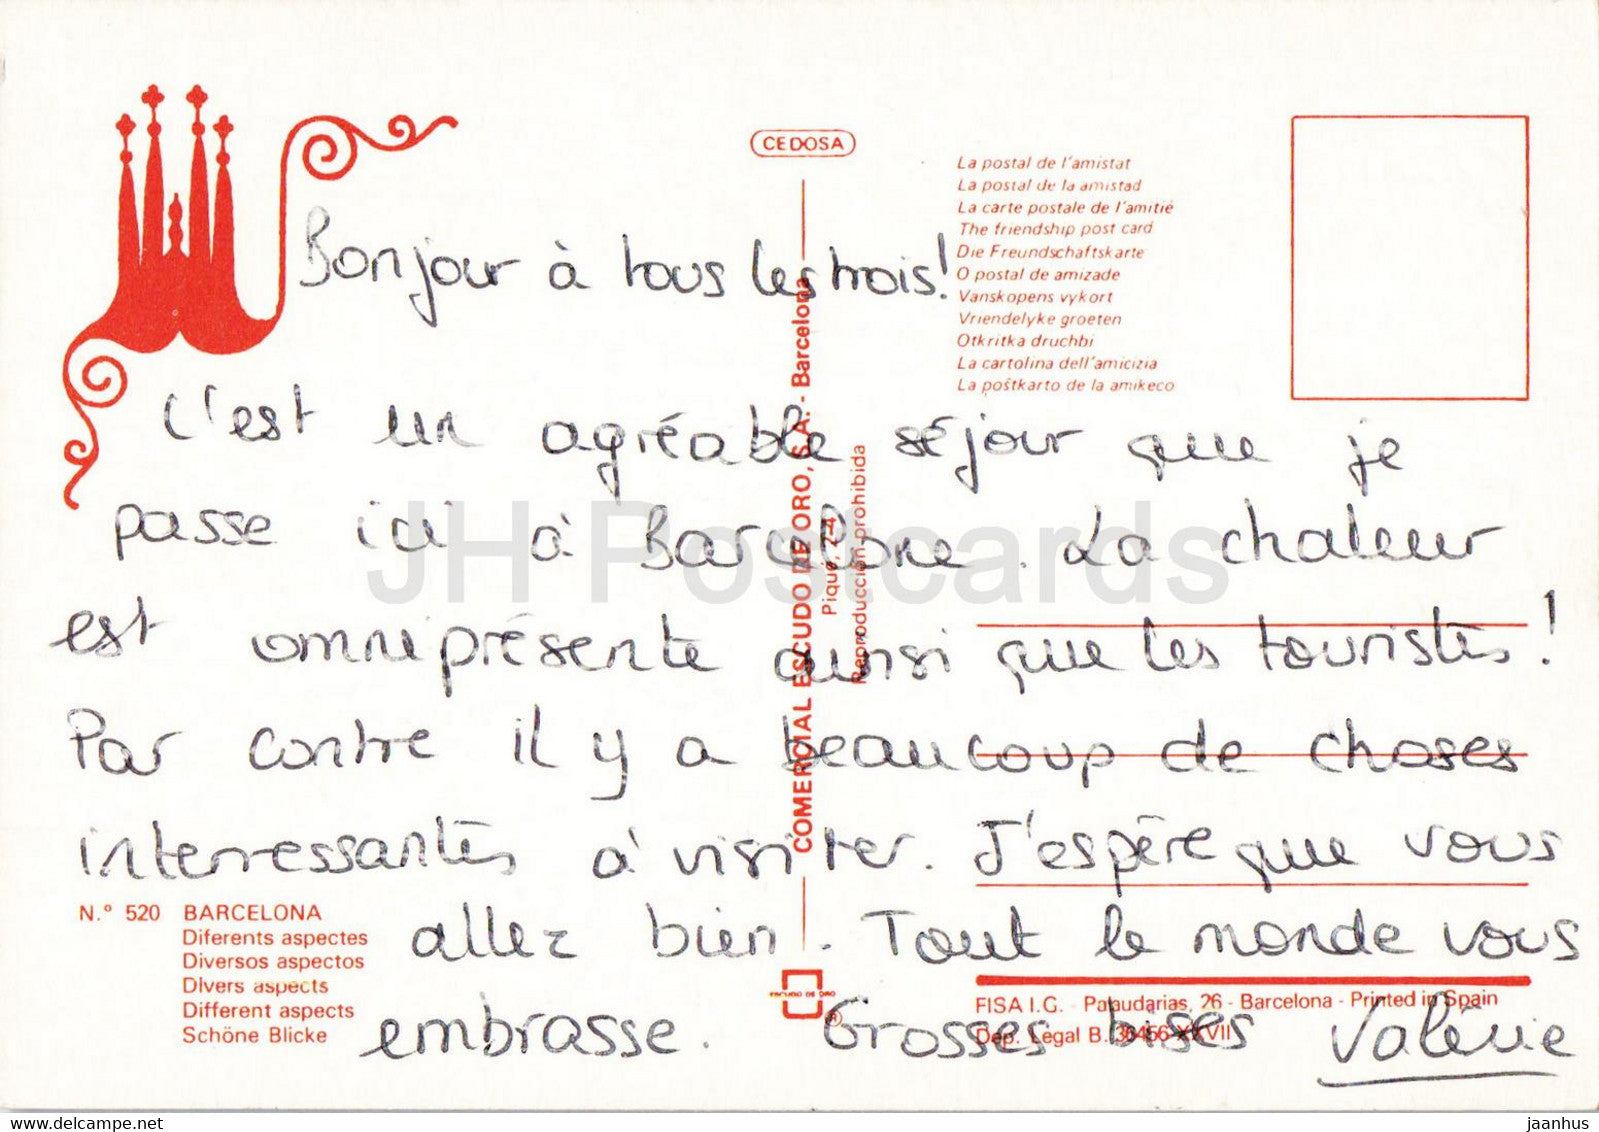 CEDOSA
La postal de l'amistat
La postal de la amistad
La carte postale de l'amitié
The friendship post card
Die Freundschaftskarte
O postal de amizade
Vanskopens vykort
Vriendelyke groeten
Otkritka druchbi
La cartolina dell'amicizia
La poŝtkarto de la amikeco
Bonjour à tous les trois!
C'est un agréable séjour que je
passe ici à Barcelone. La chaleur
est omniprésente ainsi que les touristes!
Par contre il y a beaucoup de choses
interressantes à visiter. J'espère que vous
allez bien. Tout le monde vous
embrasse. Grosses bises Valérie
COMERCIAL ESCUDO DE ORO, S.A. - Barcelona
Piqué, 2-4
Reproducción prohibida
N.º 520 BARCELONA
Diferents aspectes
Diversos aspectos
Divers aspects
Different aspects
Schöne Blicke
ESCUDO DE ORO
®
FISA I.G. - Palaudarias, 26 - Barcelona - Printed in Spain
Dep. Legal B. 36456-XXVII
JH Postcards
www.delcampe.net
jaanhus